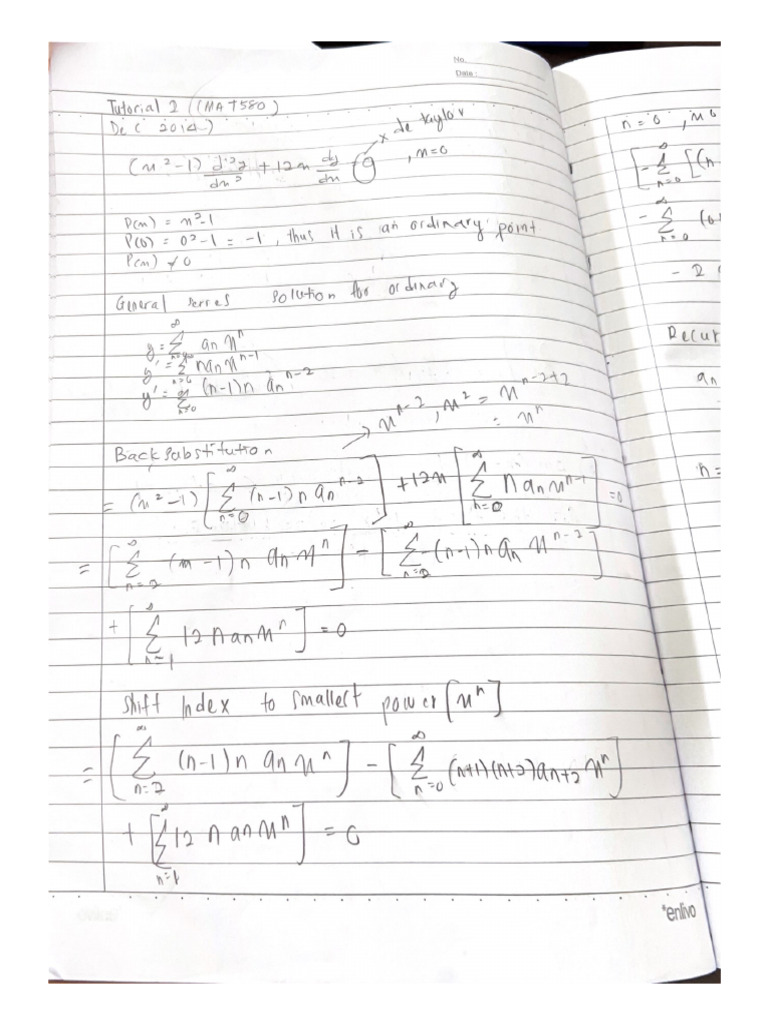 No.
Date:
Tutorial 2 (MAT580)
Dec 2014)
x de taylor
(x²-1) d²y/dx² + 12x dy/dx , x=0
P(x) = x²-1
P(0) = 0²-1 = -1, thus it is an ordinary point
P(x) ≠ 0
General series solution for ordinary
y = ∑ aₙ xⁿ
y' = ∑ n aₙ xⁿ⁻¹
y' = ∑ (n-1) n aₙⁿ⁻²
→ xⁿ⁻², x² = xⁿ⁻²⁺²
= xⁿ
Back substitution
= (x²-1) [∑_{n=0}^∞ (n-1) n aₙⁿ⁻²] + 12x [∑_{n=0}^∞ n aₙ xⁿ⁻¹] = 0
= [∑_{n=2}^∞ (n-1) n aₙ xⁿ] - [∑_{n=2}^∞ (n-1) n aₙ xⁿ⁻²]
+ [∑_{n=1}^∞ 12 n aₙ xⁿ] = 0
Shift index to smallest power [xⁿ]
= [∑_{n=2}^∞ (n-1) n aₙ xⁿ] - [∑_{n=0}^∞ (n+1)(n+2) aₙ₊₂ xⁿ]
+ [∑_{n=1}^∞ 12 n aₙ xⁿ] = 0
enlivo
n = 0
[-∑_{n=0}^∞ [(n
- ∑_{n=0}^∞ (
- 2
Recur
aₙ
n =